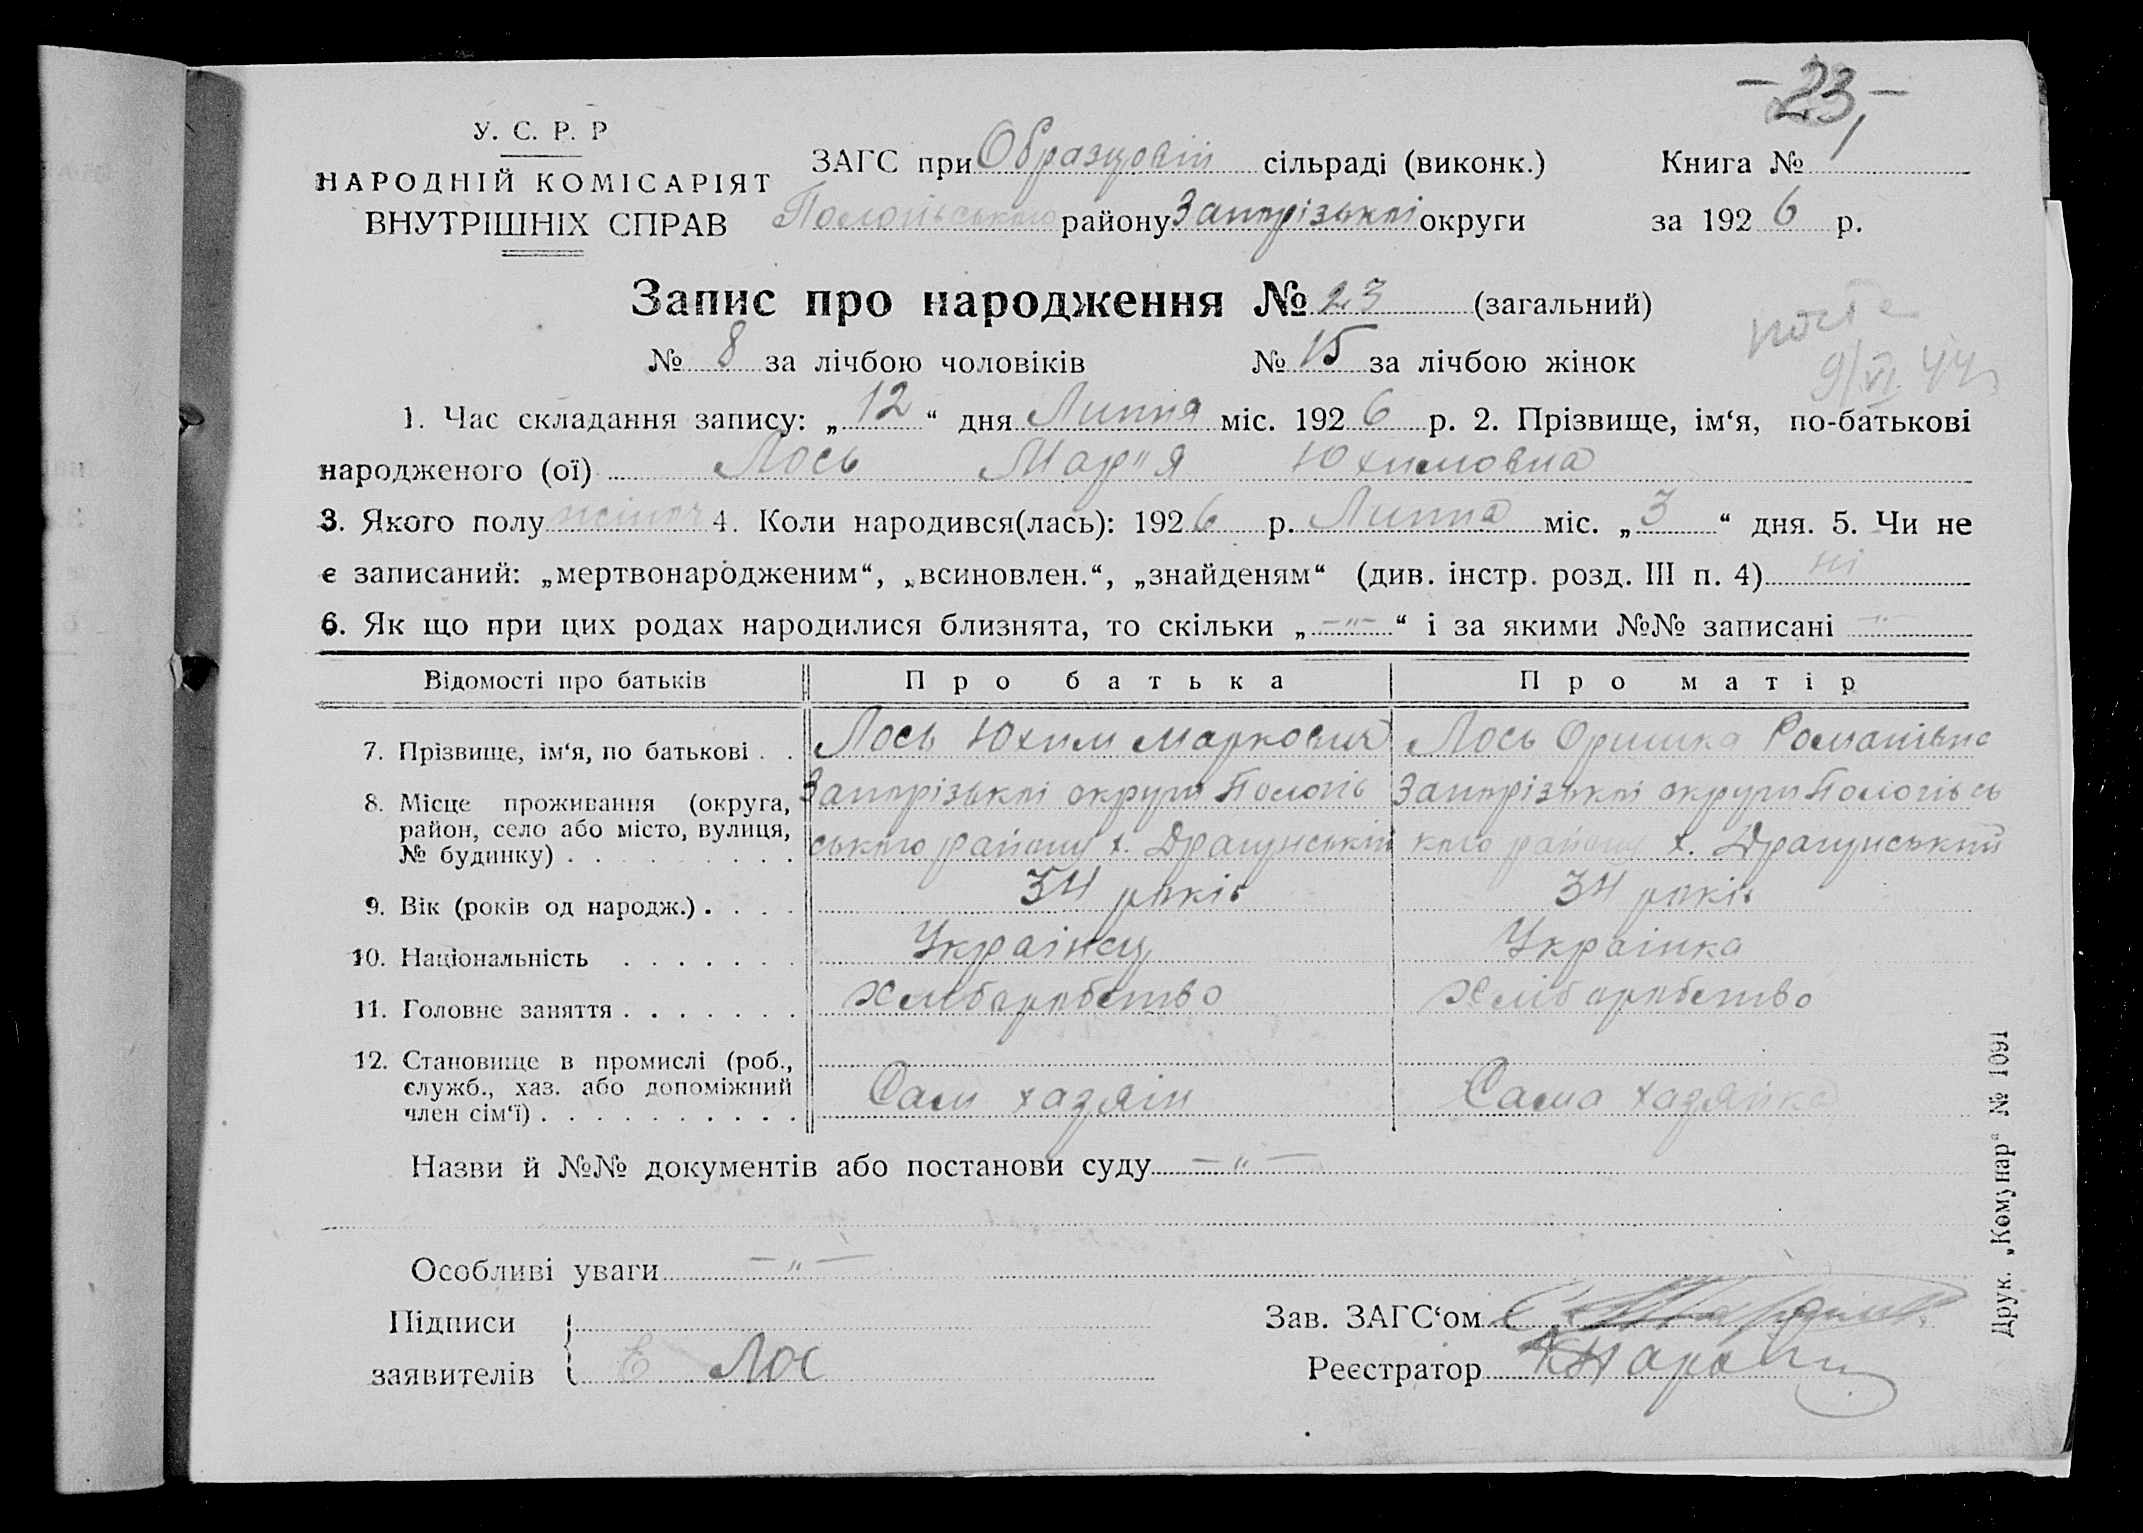 -23,-
У. С. Р. Р
НАРОДНІЙ КОМІСАРІЯТ
ВНУТРІШНІХ СПРАВ
ЗАГС при Образцовій сільраді (виконк.) Книга №
Пологівського району Запорізької округи за 1926 р.
Запис про народження № 23 (загальний)
№ 8 за лічбою чоловіків № 15 за лічбою жінок
9/VI 44
1. Час складання запису: „12“ дня Липня міс. 1926 р. 2. Прізвище, ім‘я, по-батькові
народженого (ої) Лось Мар"я Юхимовна
3. Якого полу жіноч 4. Коли народився(лась): 1926 р. Липня міс. „3“ дня. 5. Чи не
є записаний: „мертвонародженим“, „всиновлен.“, „знайденям“ (див. інстр. розд. III п. 4) ні
6. Як що при цих родах народилися близнята, то скільки „-"-“ і за якими №№ записані -"-
Відомості про батьків Про батька Про матір
7. Прізвище, ім‘я, по батькові . . Лось Юхим Маркович Лось Оришка Романівна
8. Місце проживання (округа, район, село або місто, вулиця, № будинку) . . . . . . . . .
Запорізької округи Пологівь
ського району х. Драгунський
Запорізької округи Пологівсь
кого району х. Драгунський
9. Вік (років од народж.) . . . . 34 років 34 років
10. Національність . . . . . . . Українец Українка
11. Головне заняття . . . . . . . Хлиборобство Хліборобство
12. Становище в промислі (роб.,
служб., хаз. або допоміжний
член сім‘ї) . . . . . . . . . . Сам хазяін Сама хазяйка
Назви й №№ документів або постанови суду -"-
Особливі уваги -"-
Підписи
заявителів Е Лос
Зав. ЗАГС‘ом
Реєстратор
Друк. „Комунар“ № 1091